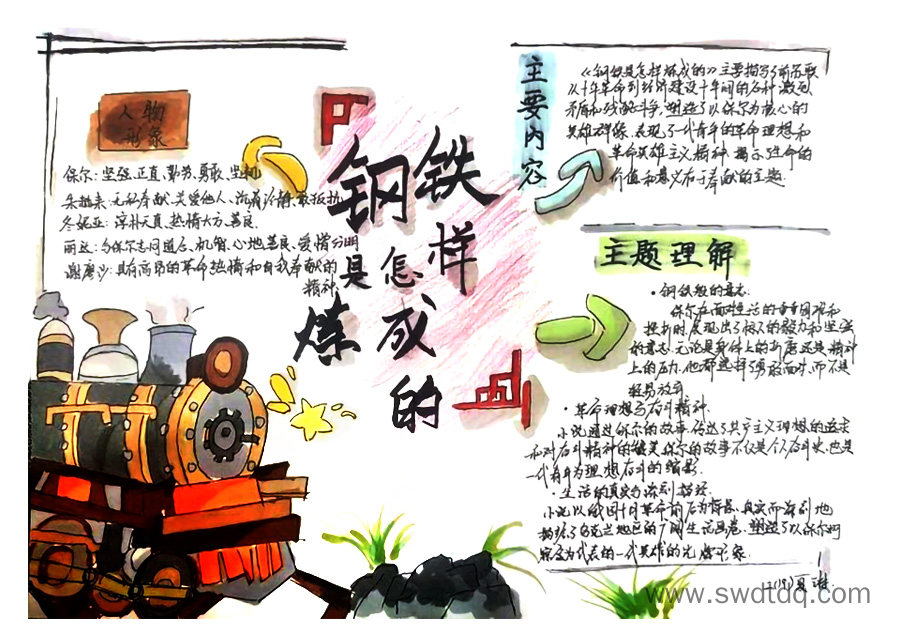 人物
形象
保尔:坚强、正直、勤劳、勇敢、坚韧
朱赫来:无私奉献、关爱他人、沉着冷静、敢抵抗
冬妮亚:淳朴天真、热情大方、善良
丽达:与保尔志同道合、机智、心地善良、爱憎分明
谢廖沙:具有高昂的革命热情和自我奉献的
精神
钢铁
是怎样
炼成
的
主要内容
《钢铁是怎样炼成的》主要描写了前苏联
从十年革命到经济建设十年间的各种激烈
矛盾和残酷斗争,塑造了以保尔为核心的
英雄群像,表现了一代青年的革命理想和
革命英雄主义精神,揭示生命的
价值和意义在于奉献的主题.
主题理解
·钢铁般的意志
保尔在面对生活的重重困难和
挫折时,展现出了极大的毅力和坚强
的意志,无论是身体上的折磨还是精神
上的压力,他都选择了勇敢面对,而不是
轻易放弃
·革命理想与奋斗精神.
小说通过保尔的故事,传达了共产主义理想的追求
和对奋斗精神的赞美,保尔的故事不仅是个人奋斗史,也是
一代青年为理想奋斗的缩影.
·生活的真实与深刻描绘.
小说以俄国十月革命前后为背景,真实而深刻地
描绘了乌克兰地区的广阔生活画卷,塑造了以保尔柯
察金为代表的一代英雄的光辉形象.
www.swdtdq.com